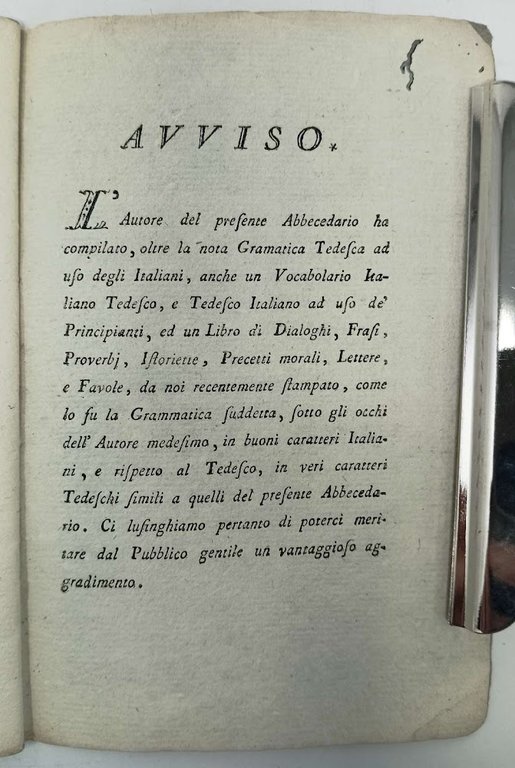 AVVISO.
L'Autore del preſente Abbecedario ha
compilato, oltre la nota Gramatica Tedeſca ad
uſo degli Italiani, anche un Vocabolario Ita-
liano Tedeſco, e Tedeſco Italiano ad uſo de'
Principianti, ed un Libro di Dialoghi, Fraſi,
Proverbj, Iſtoriette, Precetti morali, Lettere,
e Favole, da noi recentemente ſtampato, come
lo fu la Grammatica ſuddetta, ſotto gli occhi
dell' Autore medeſimo, in buoni caratteri Italia-
ni, e riſpetto al Tedeſco, in veri caratteri
Tedeſchi ſimili a quelli del preſente Abbeceda-
rio. Ci luſinghiamo pertanto di poterci meri-
tare dal Pubblico gentile un vantaggioſo ag-
gradimento.